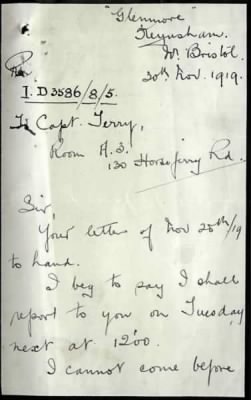 "Glenmore"
Keynsham.
Nr. Bristol.
30th Nov. 1919.
Re
I.D 3586/8/5.
To Capt. Terry,
Room A.3.
130 Horseferry Rd.
Sir,
Your letter of Nov 28th/19
to hand.
I beg to say I shall
report to you on Tuesday
next at 12.00.
I cannot come before